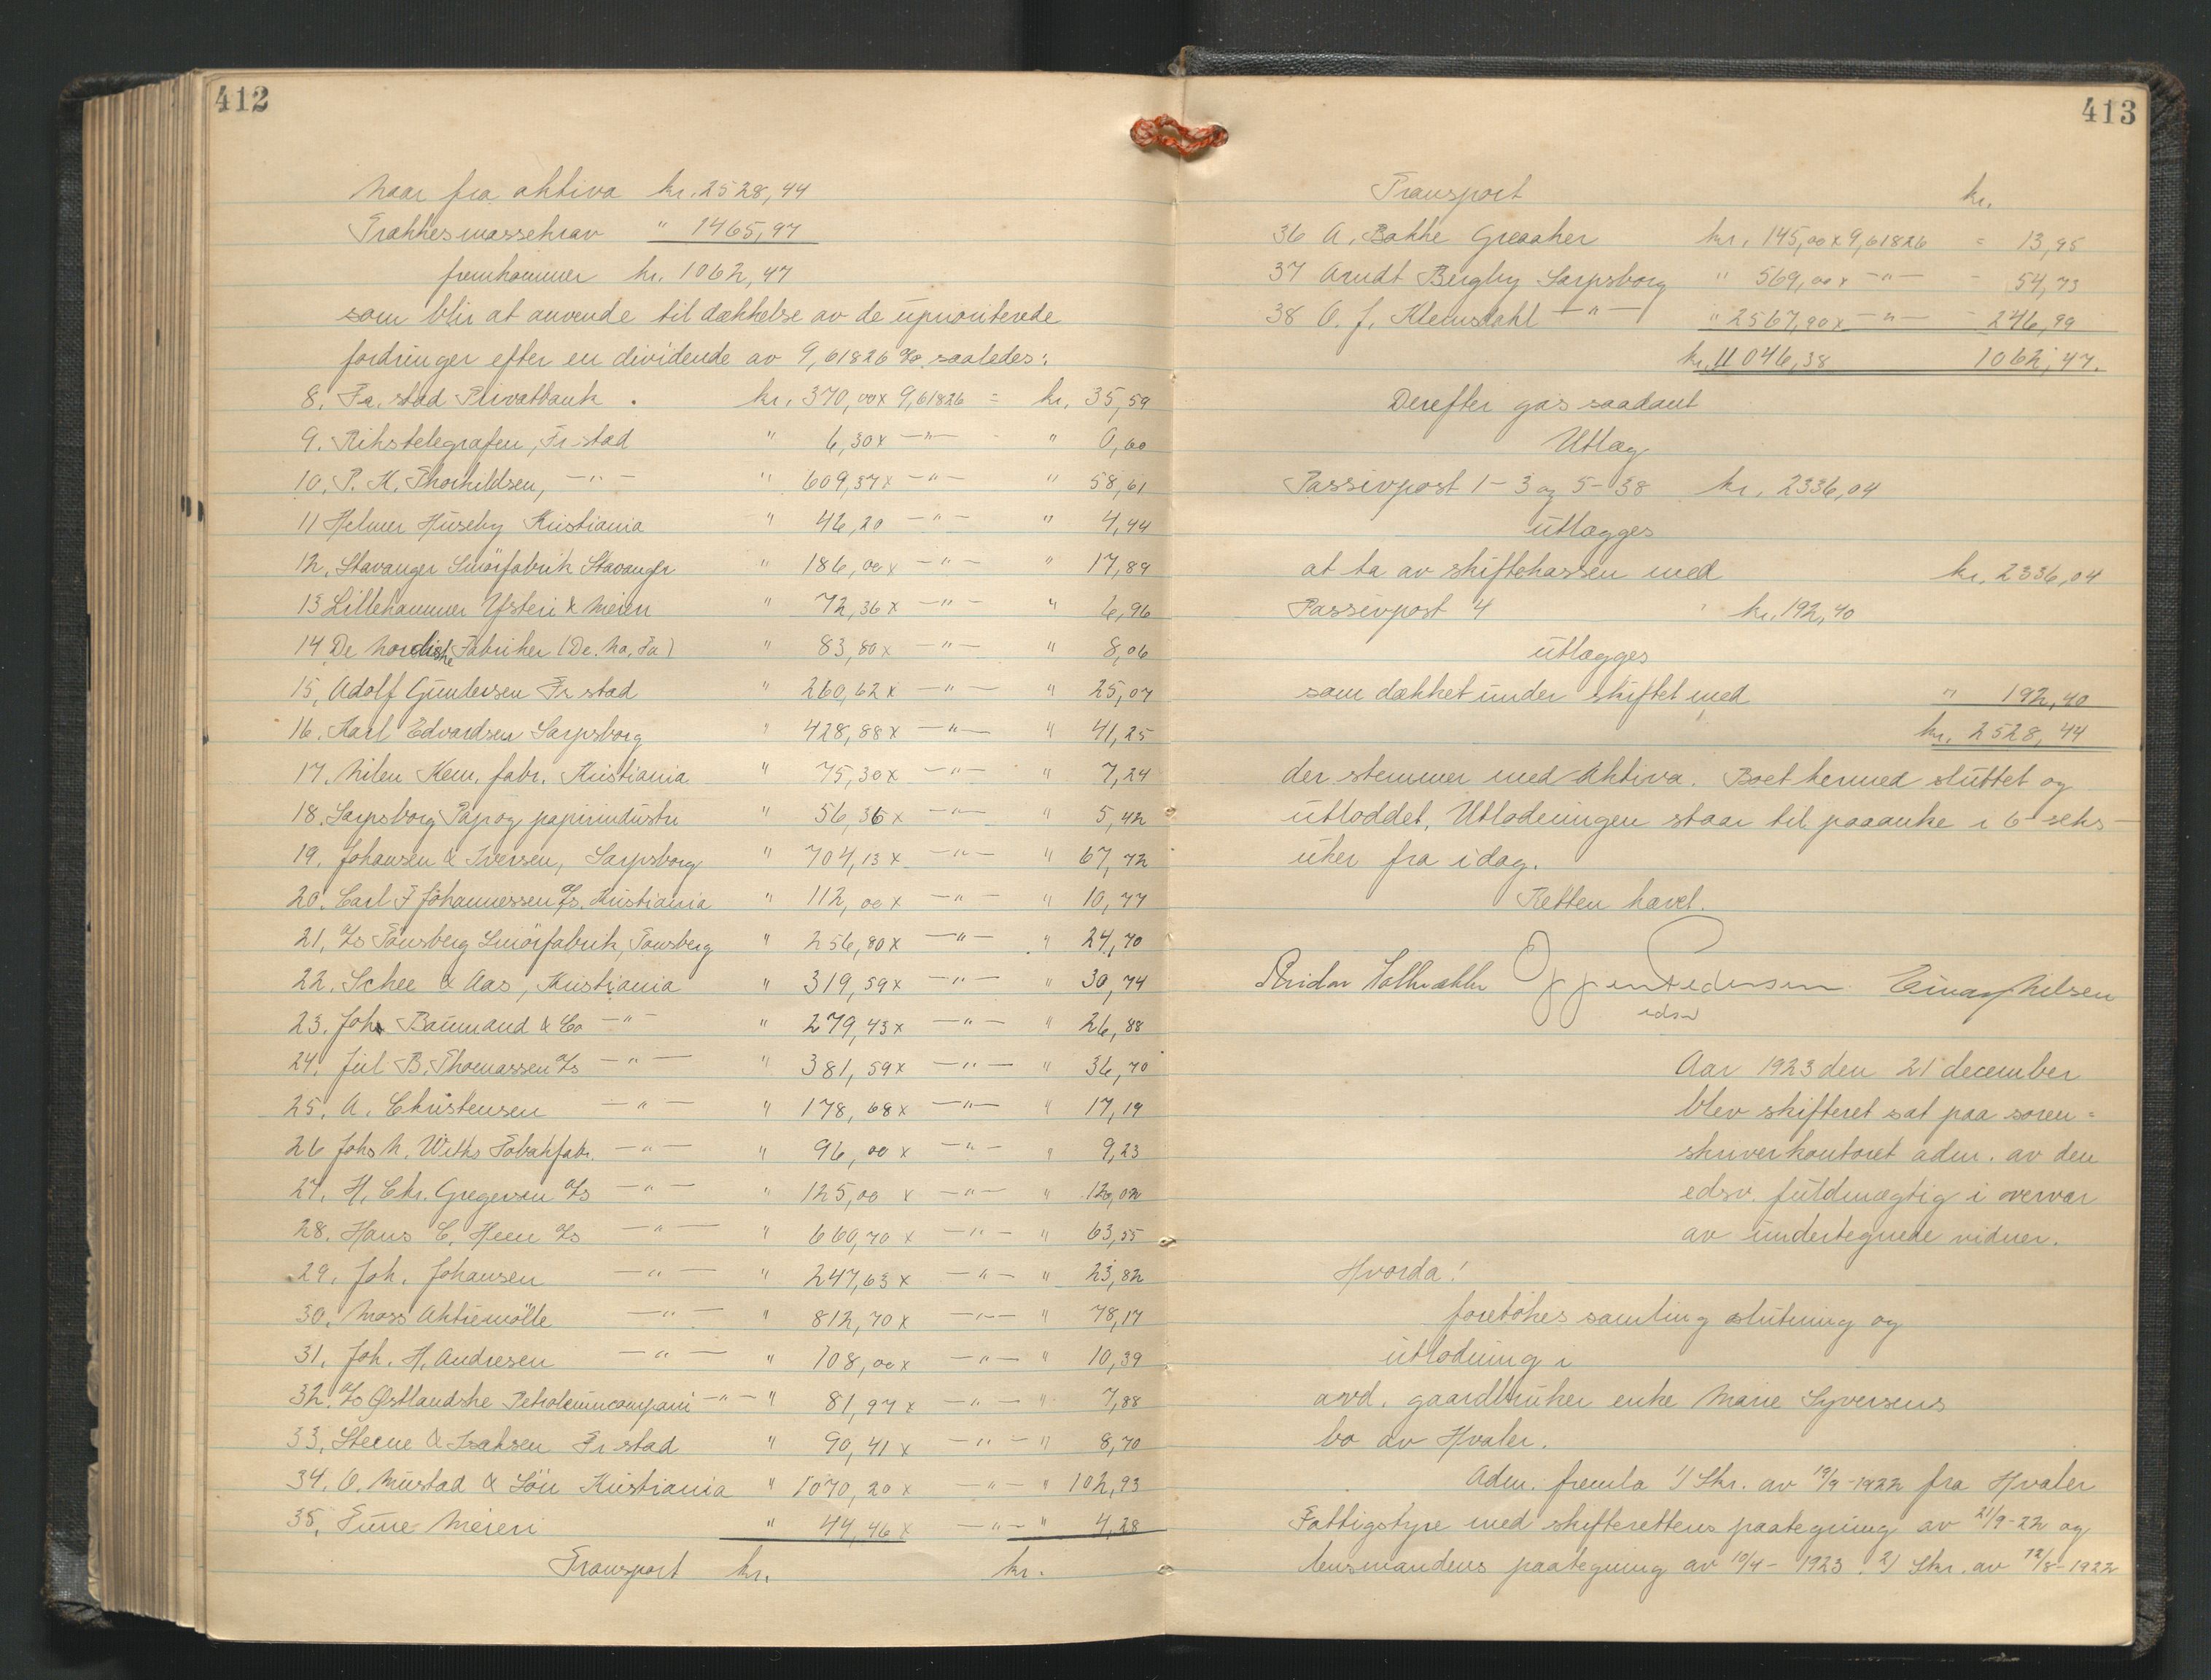 412
Naar fra aktiva kr. 2528,44
Trækkes massekrav " 1465,97
fremkommer kr. 1062,47
som blir at anvende til dækkelse av de uprioriterede
fordringer efter en dividende av 9,61826 % saaledes:
8. Fr.stad Privatbank. kr. 370,00 x 9,61826 = kr. 35,59
9. Rikstelegrafen, Fr-stad " 6,30 x —"— - " 0,60
10. P. K. Thorkildsen, —"— " 609,37 x —"— " 58,61
11 Helmer Huseby Kristiania " 46,20 —"— " 4,44
12. Stavanger Smörfabrik Stavanger " 186,00 x —"— " 17,89
13 Lillehammer Ysteri & Meieri " 72,36 x —"— " 6,96
14 De Nordiske Fabriker (De. No. Fa) " 83,80 x —"— " 8,06
15. Adolf Gundersen Fr stad " 260,62 x —"— " 25,07
16. Karl Edvardsen Sarpsborg " 428,88 x —"— " 41,25
17. Nilen Kem. fabr. Kristiania " 75,30 x —"— " 7,24
18. Sarpsborg Pap og papirindustri " 56,36 x —"— " 5,42
19. Johansen & Iversen, Sarpsborg " 704,13 x —"— " 67,72
20. Carl F Johannessen A/S. Kristiania " 112,00 x —"— " 10,77
21. A/S Tønsberg Smörfabrik, Tønsberg " 256,80 x —"— " 24,70
22. Schee & Aas, Kristiania " 319,59 x —"— " 30,74
23. Johs Baumand & Co —"— " 279,43 x —"— " 26,88
24. Jul B. Thomassen A/S —"— " 381,59 x —"— " 36,70
25. A. Christensen —"— " 178,68 x —"— " 17,19
26 Johs N. Withs Tobakfabr. —"— " 96,00 x —"— " 9,23
27. H. Chr. Gregersen A/S —"— " 125,00 x —"— " 12,02
28. Hans C. Heen A/S —"— " 660,70 x —"— " 63,55
29. Joh. Johansen —"— " 247,63 x —"— " 23,82
30. Moss Aktiemölle —"— " 812,70 x —"— " 78,17
31. Joh. H. Andresen —"— " 108,00 x —"— " 10,39
32. A/S Østlandske Petroleumcompani —"— " 81,97 x —"— " 7,88
33. Steene & Isaksen Fr stad " 90,41 x —"— " 8,70
34. O. Mustad & Sön Kristiania " 1070,20 x —"— " 102,93
35. Tune Meieri " 44,46 x —"— " 4,28
Transport kr. kr.
413
Transport kr.
36 A. Bakke Greaaker kr. 145,00 x 9,61826 = 13,95
37 Arndt Bergby Sarpsborg " 569,00 x —"— - 54,73
38 O. J. Klemsdahl —"— " 2567,90 x —"— - 246,99
kr. 11046,38 1062,47.
Derefter gis saadant
Utlæg
Passivpost 1-3 og 5-38 kr. 2336,04
utlægges
at ta av skiftekassen med kr. 2336,04
Passivpost 4 kr. 192,40
utlægges
som dækket under skiftet med " 192,40
kr. 2528,44
der stemmer med Aktiva. Boet hermed sluttet og
utloddet. Utlodningen staar til paaanke i 6 seks
uker fra idag.
Retten hævet.
Jørgen Pedersen Einar Nilsen
edsv
Aar 1923 den 21 december
blev skifteret sat paa soren=
skriverkontoret adm. av den
edsv. fuldmægtig i overvær
av undertegnede vidner.
Hvorda!
foretokes samling slutning og
utlodning i
avd. gaardbruker enke Marie Syversens
bo av Hvaler.
Adm. fremla 1) Skr. av 19/9-1922 fra Hvaler
Fattigstyre med skifterettens paategning av 21/9-22 og
lensmandens paategning av 10/4-1923. 2) Skr. av 12/8-1922